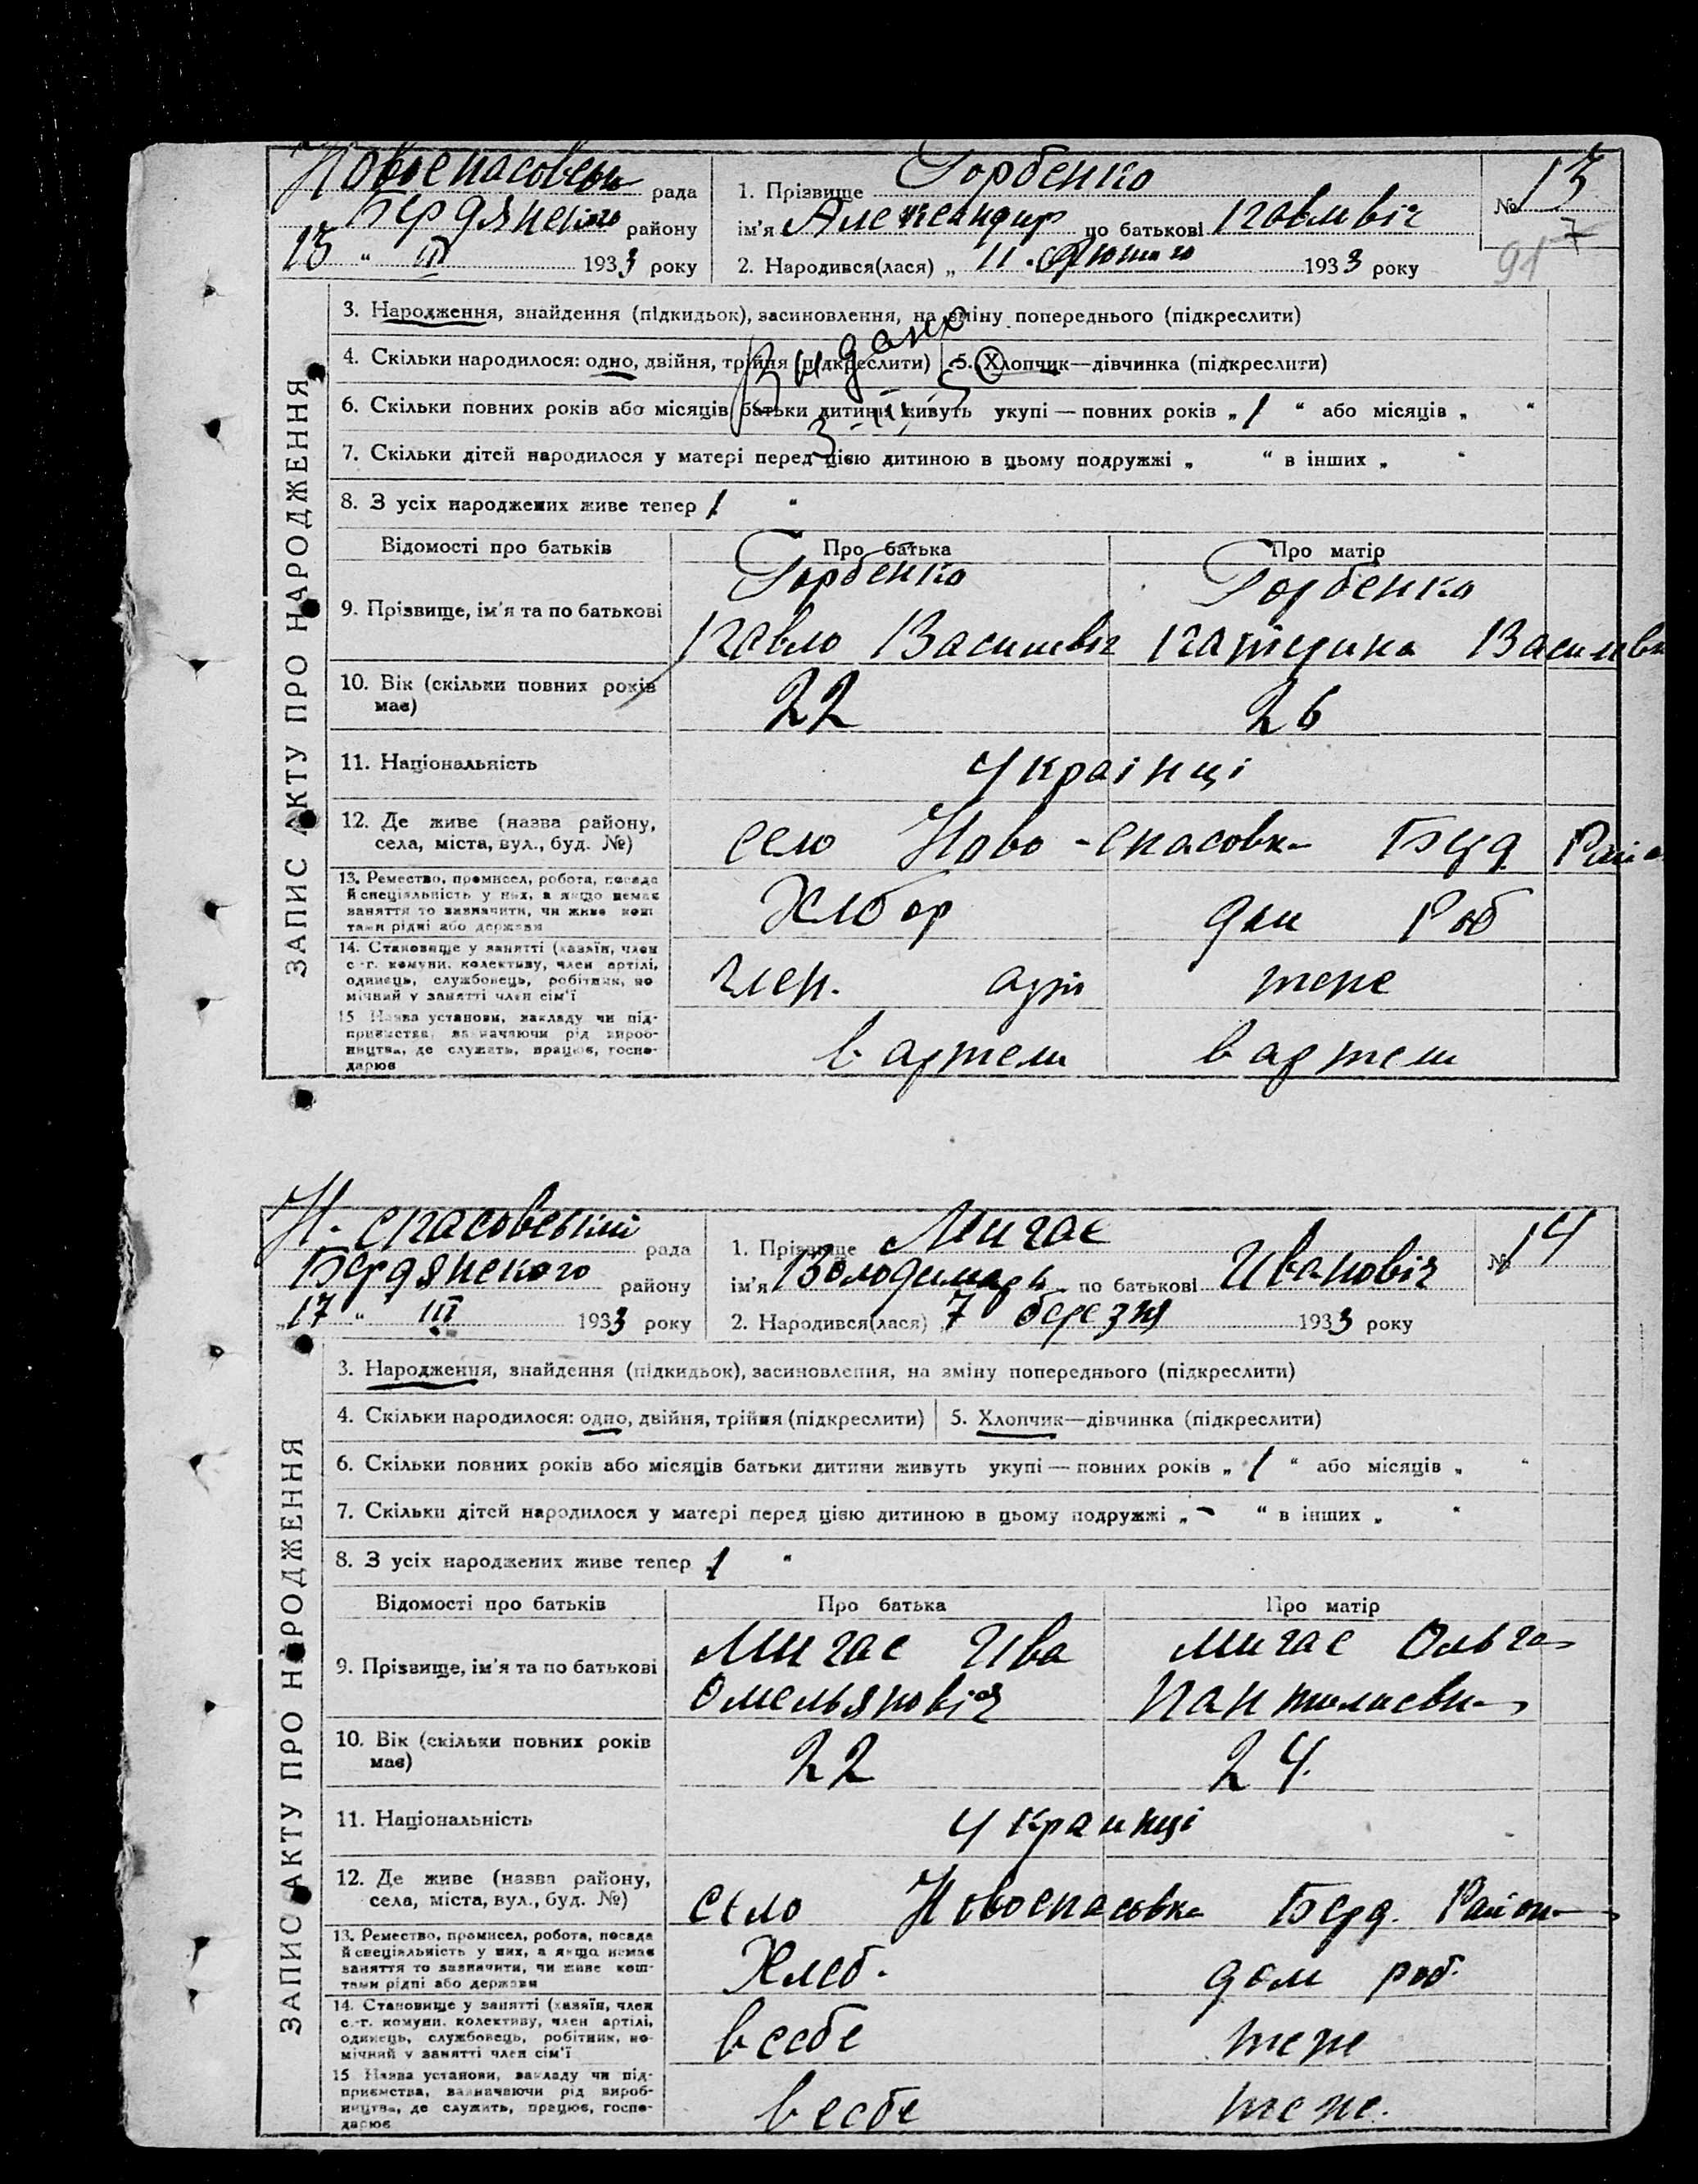 Новоспасовськ рада
Бердянського району
15 " III 1933 року
1. Прізвище Горбенко
ім'я Александр по батькові Павлвіч
2. Народився(лася) „ 11 . Лютого 1933 року
№ 13
7
91
ЗАПИС АКТУ ПРО НАРОДЖЕННЯ
3. Народження, знайдення (підкидьок), засиновлення, на зміну попереднього (підкреслити)
Видано
4. Скільки народилося: одно, двійня, трійня (підкреслити) 5. Хлопчик—дівчинка (підкреслити)
6. Скільки повних років або місяців батьки дитини живуть укупі — повних років „ 1 “ або місяців „ “
7. Скільки дітей народилося у матері перед цією дитиною в цьому подружжі „ “ в інших „ “
8. З усіх народжених живе тепер 1 “
Відомості про батьків Про батька Про матір
9. Прізвище, ім'я та по батькові
Горбенко Горбенко
Павло Василевіч Катерина Василевн
10. Вік (скільки повних років має) 22 26
11. Національність Українці
12. Де живе (назва району, села, міста, вул., буд. №) село Ново-спасовка Берд Район
13. Ремество, промисел, робота, посада й спеціяльність у них, а якщо немає заняття то зазначити, чи живе коштами рідні або держави Хлбор дом Роб
14. Становище у занятті (хазяїн, член с.-г. комуни, колективу, член артілі, одинець, службовець, робітник, помічний у занятті член сім'ї член. арт теже
15 Назва установи, закладу чи підприємства, зазначаючи рід виробництва, де служить, працює, господарює в артели в артели
Н. спасовський рада
Бердянського району
„17 “ III 1933 року
1. Прізвище Мигає
ім'я Володимирь по батькові Ивановіч
2. Народився(лася) 7 березня 1933 року
№ 14
ЗАПИС АКТУ ПРО НАРОДЖЕННЯ
3. Народження, знайдення (підкидьок), засиновлення, на зміну попереднього (підкреслити)
4. Скільки народилося: одно, двійня, трійня (підкреслити) 5. Хлопчик—дівчинка (підкреслити)
6. Скільки повних років або місяців батьки дитини живуть укупі — повних років „ 1 “ або місяців „ “
7. Скільки дітей народилося у матері перед цією дитиною в цьому подружжі „ - “ в інших „ “
8. З усіх народжених живе тепер 1 “
Відомості про батьків Про батька Про матір
9. Прізвище, ім'я та по батькові
Мигає Ива Мигає Ольга
Омельяновіч Пантилиевн
10. Вік (скільки повних років має) 22 24.
11. Національність Украинці
12. Де живе (назва району, села, міста, вул., буд. №) село Новоспасовка Берд. Район
13. Ремество, промисел, робота, посада й спеціяльність у них, а якщо немає заняття то зазначити, чи живе коштами рідні або держави Хлеб. дом роб.
14. Становище у занятті (хазяїн, член с.-г. комуни, колективу, член артілі, одинець, службовець, робітник, помічний у занятті член сім'ї в себе теже
15 Назва установи, закладу чи підприємства, зазначаючи рід виробництва, де служить, працює, господарює в себе теже.